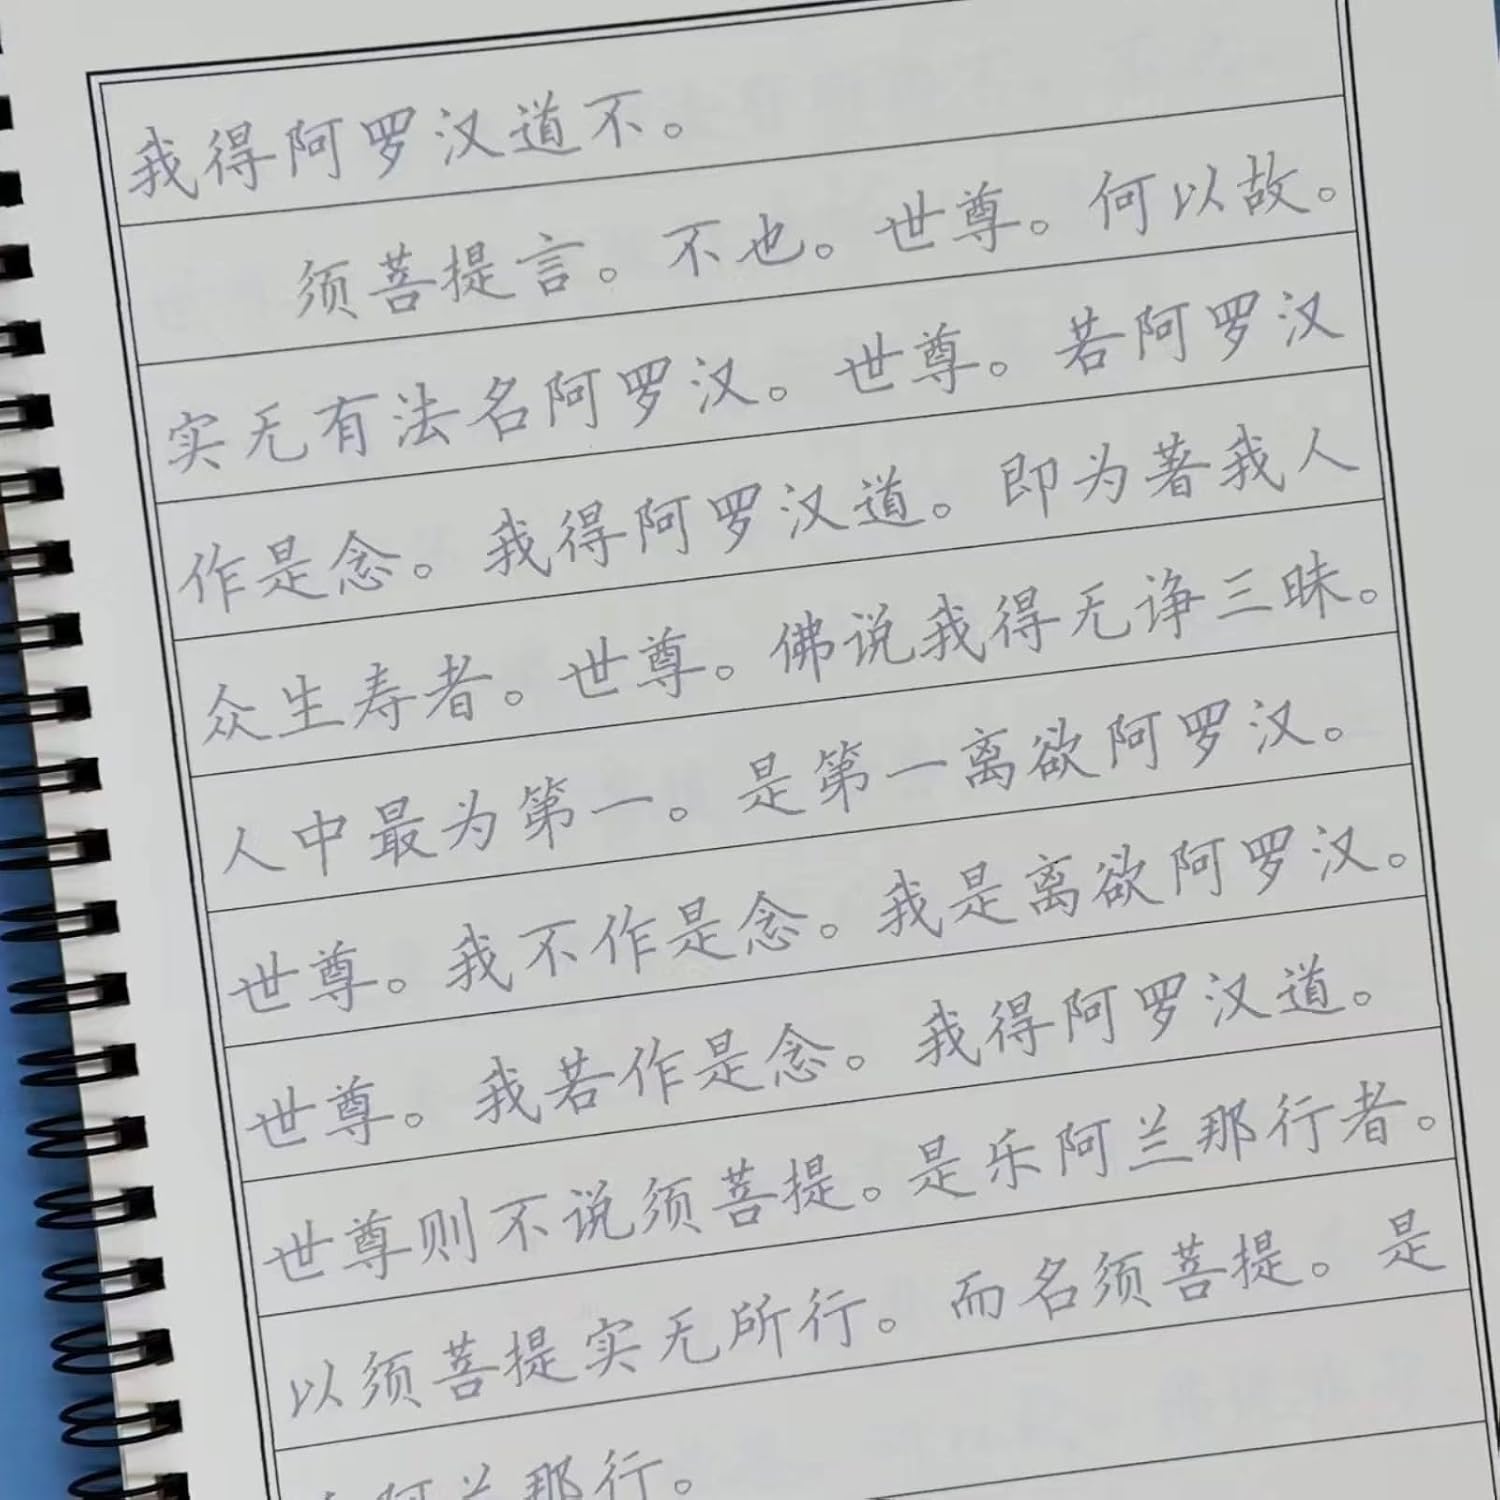 我得阿罗汉道不。
须菩提言。不也。世尊。何以故。
实无有法名阿罗汉。世尊。若阿罗汉
作是念。我得阿罗汉道。即为著我人
众生寿者。世尊。佛说我得无诤三昧。
人中最为第一。是第一离欲阿罗汉。
世尊。我不作是念。我是离欲阿罗汉。
世尊。我若作是念。我得阿罗汉道。
世尊则不说须菩提。是乐阿兰那行者。
以须菩提实无所行。而名须菩提。是
阿兰那行。